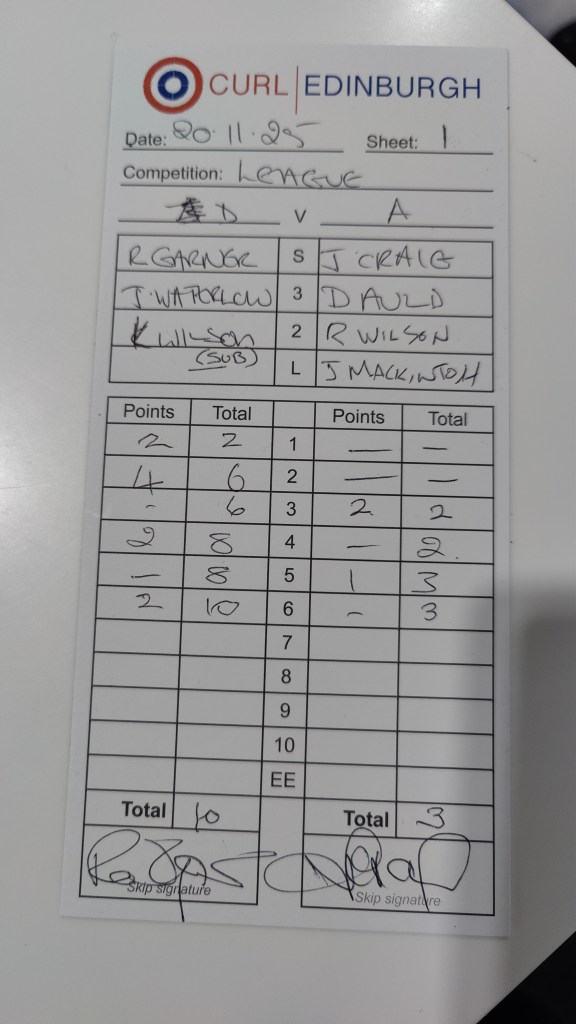 CURL EDINBURGH
Date: 20.11.25 Sheet: 1
Competition: LEAGUE
D v A
R GARNER S J CRAIG
J. WATERLOW 3 D AULD
K WILSON 2 R WILSON
(SUB) L J MACKINTOSH
Points Total Points Total
2 2 1 — —
4 6 2 — —
- 6 3 2 2
2 8 4 — 2.
— 8 5 1 3
2 10 6 - 3
7
8
9
10
EE
Total 10 Total 3
Skip signature Skip signature